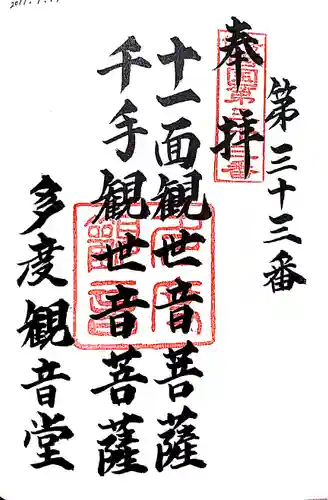 奉拝
第三十三番
十一面観世音菩薩
千手観世音菩薩
多度観音堂